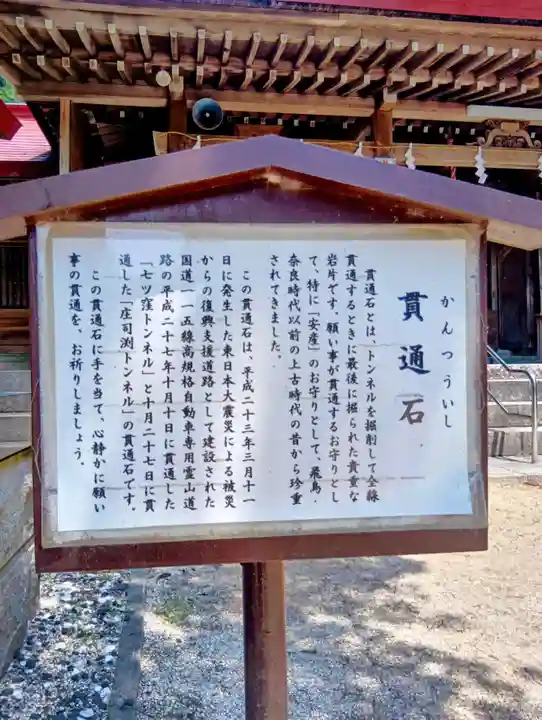 かんつういし
貫通石
貫通石とは、トンネルを掘削して全線
貫通するときに最後に掘られた貴重な
岩片です。願い事が貫通するお守りとし
て、特に「安産」のお守りとして、飛鳥・
奈良時代以前の上古時代の昔から珍重
されてきました。
この貫通石は、平成二十三年三月十一
日に発生した東日本大震災による被災
からの復興支援道路として建設された
国道一一五線高規格自動車専用霊山道
路の平成二十七年十月十日に貫通した
「七ツ窪トンネル」と十月二十七日に貫
通した「庄司渕トンネル」の貫通石です。
この貫通石に手を当て、心静かに願い
事の貫通を、お祈りしましょう。